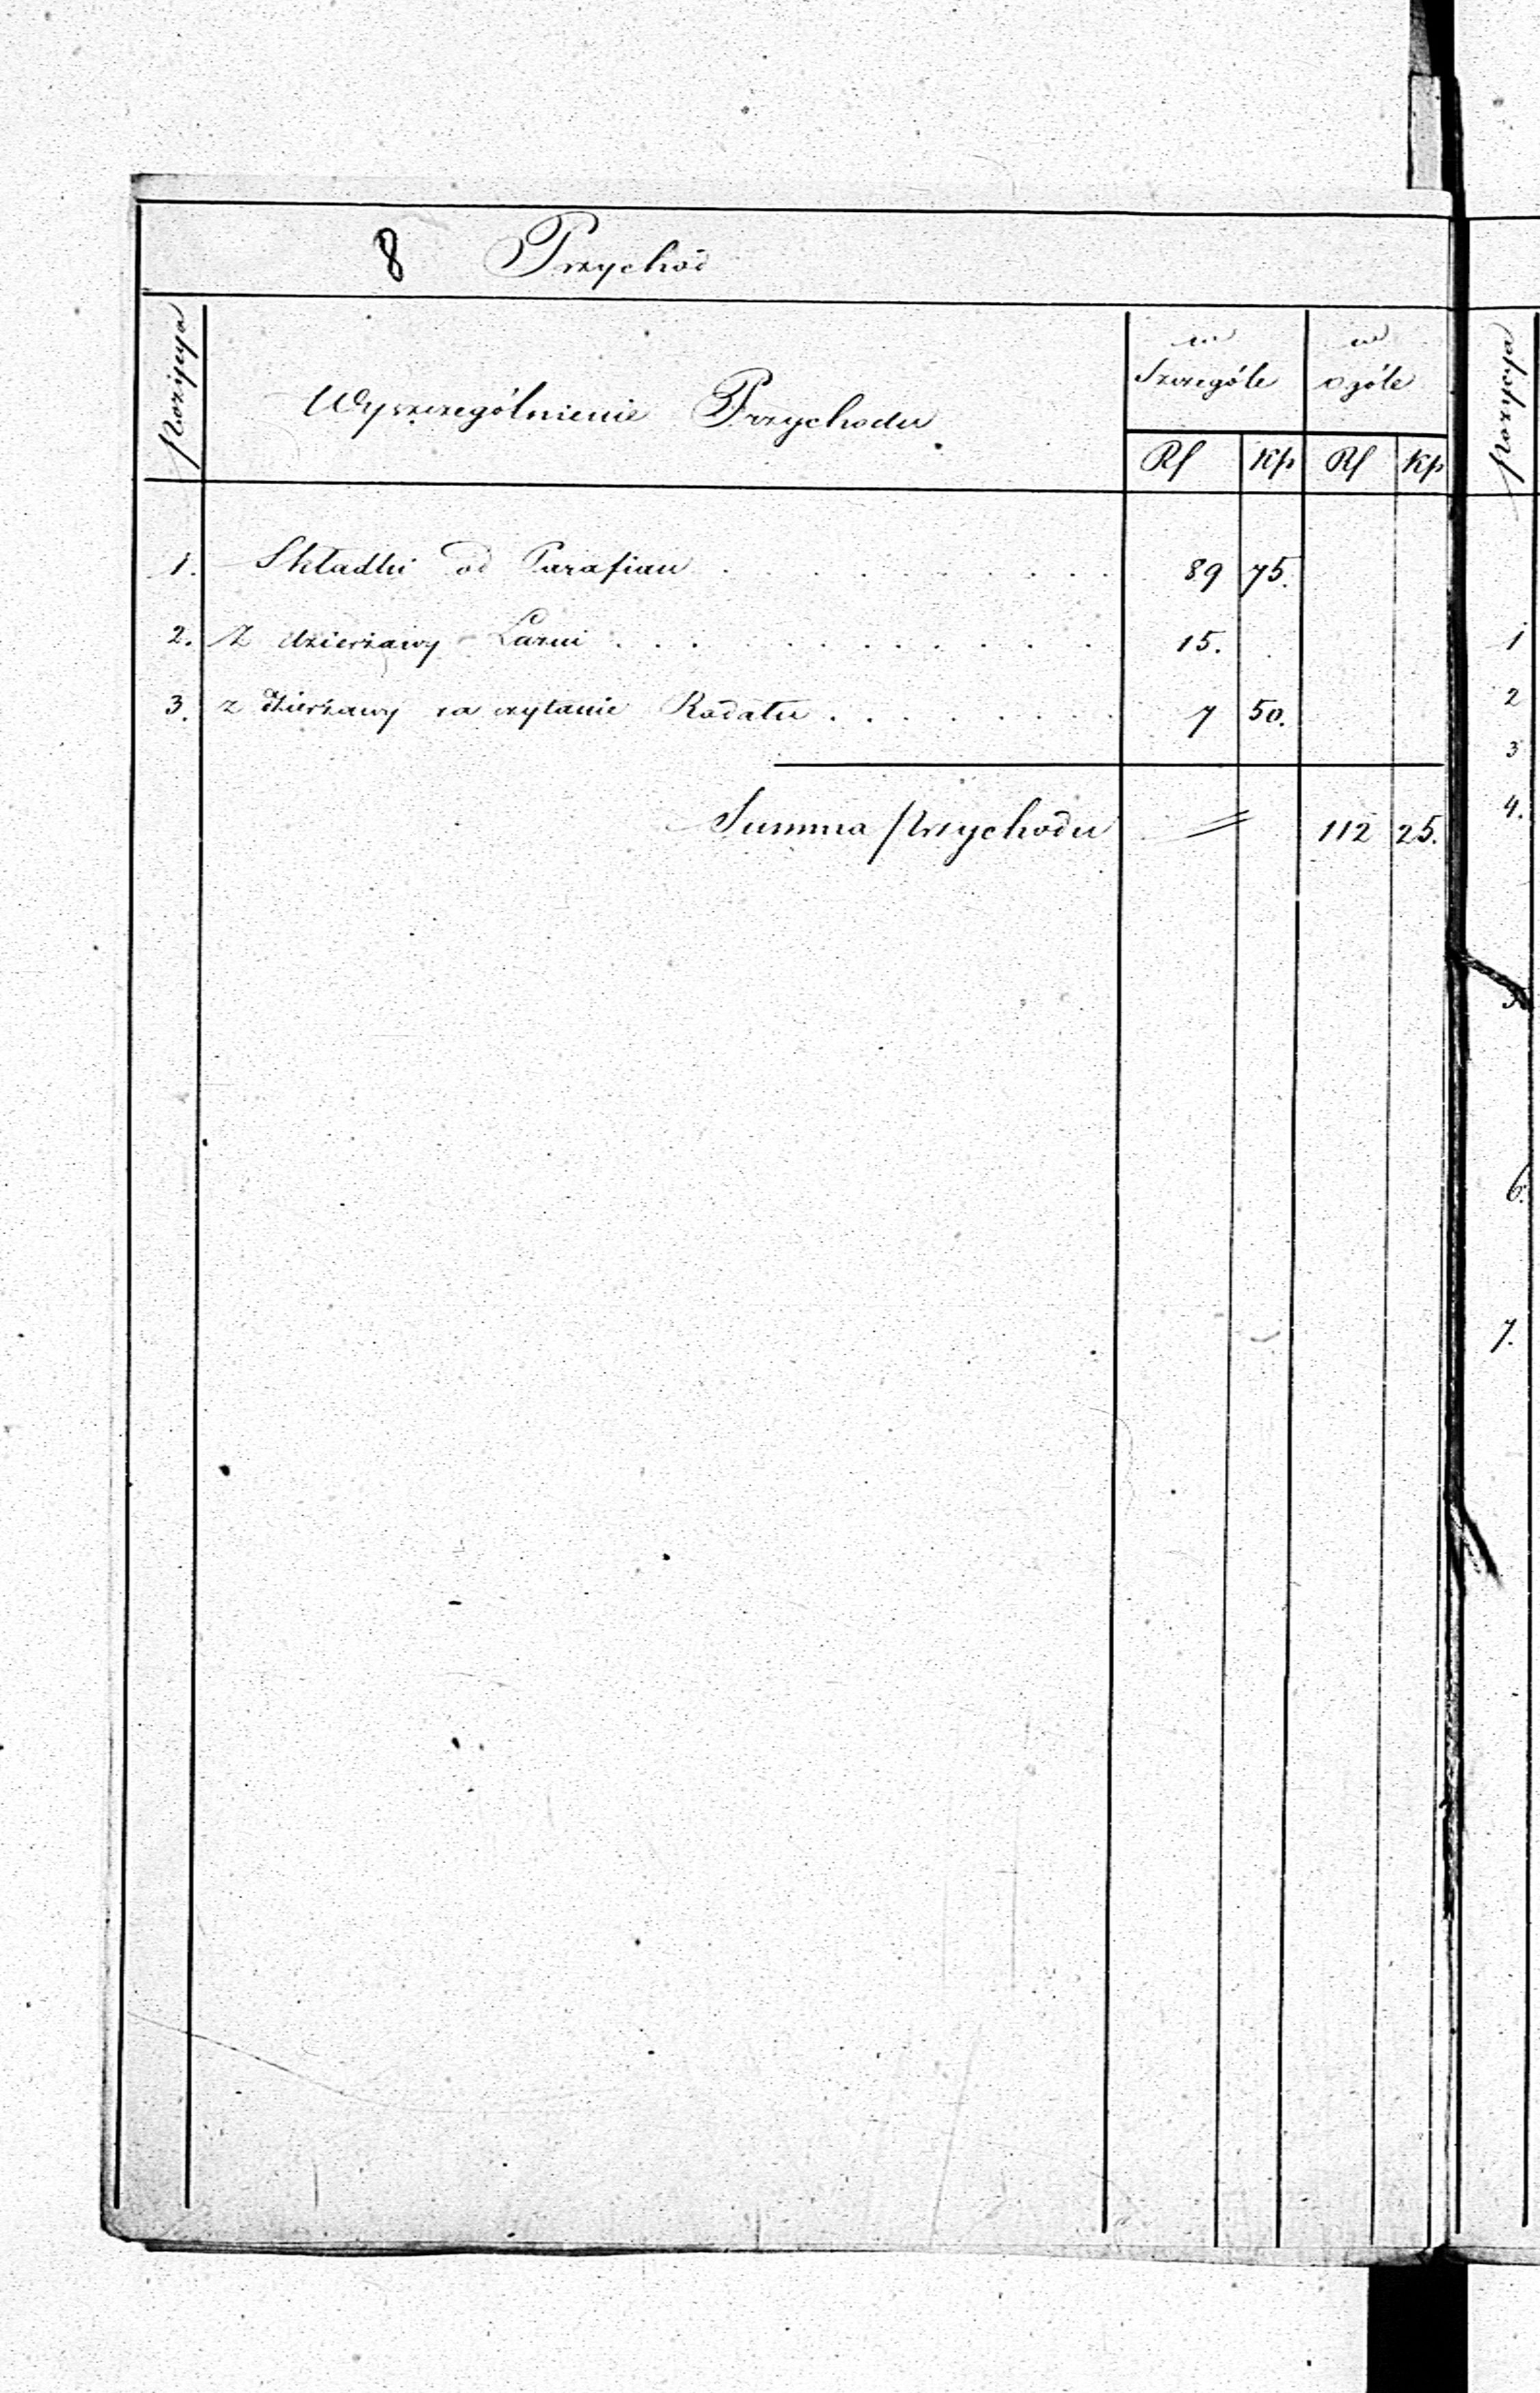 8 Przychód
Pozycya
Wyszczególnienie Przychodu
w Szczególe
w ogóle
Rs Kp Rs Kp
1. Składki od Parafian . . . . . . . . . . . 89 75.
2. Z dzierżawy Łazni . . . . . . . . . . . . 15. .
3. z dzierżawy za czytanie Rodału . . . . . . . . 7 50.
Summa przychodu 112 25.
Pozycya
1
2
3
4.
5.
6.
7.